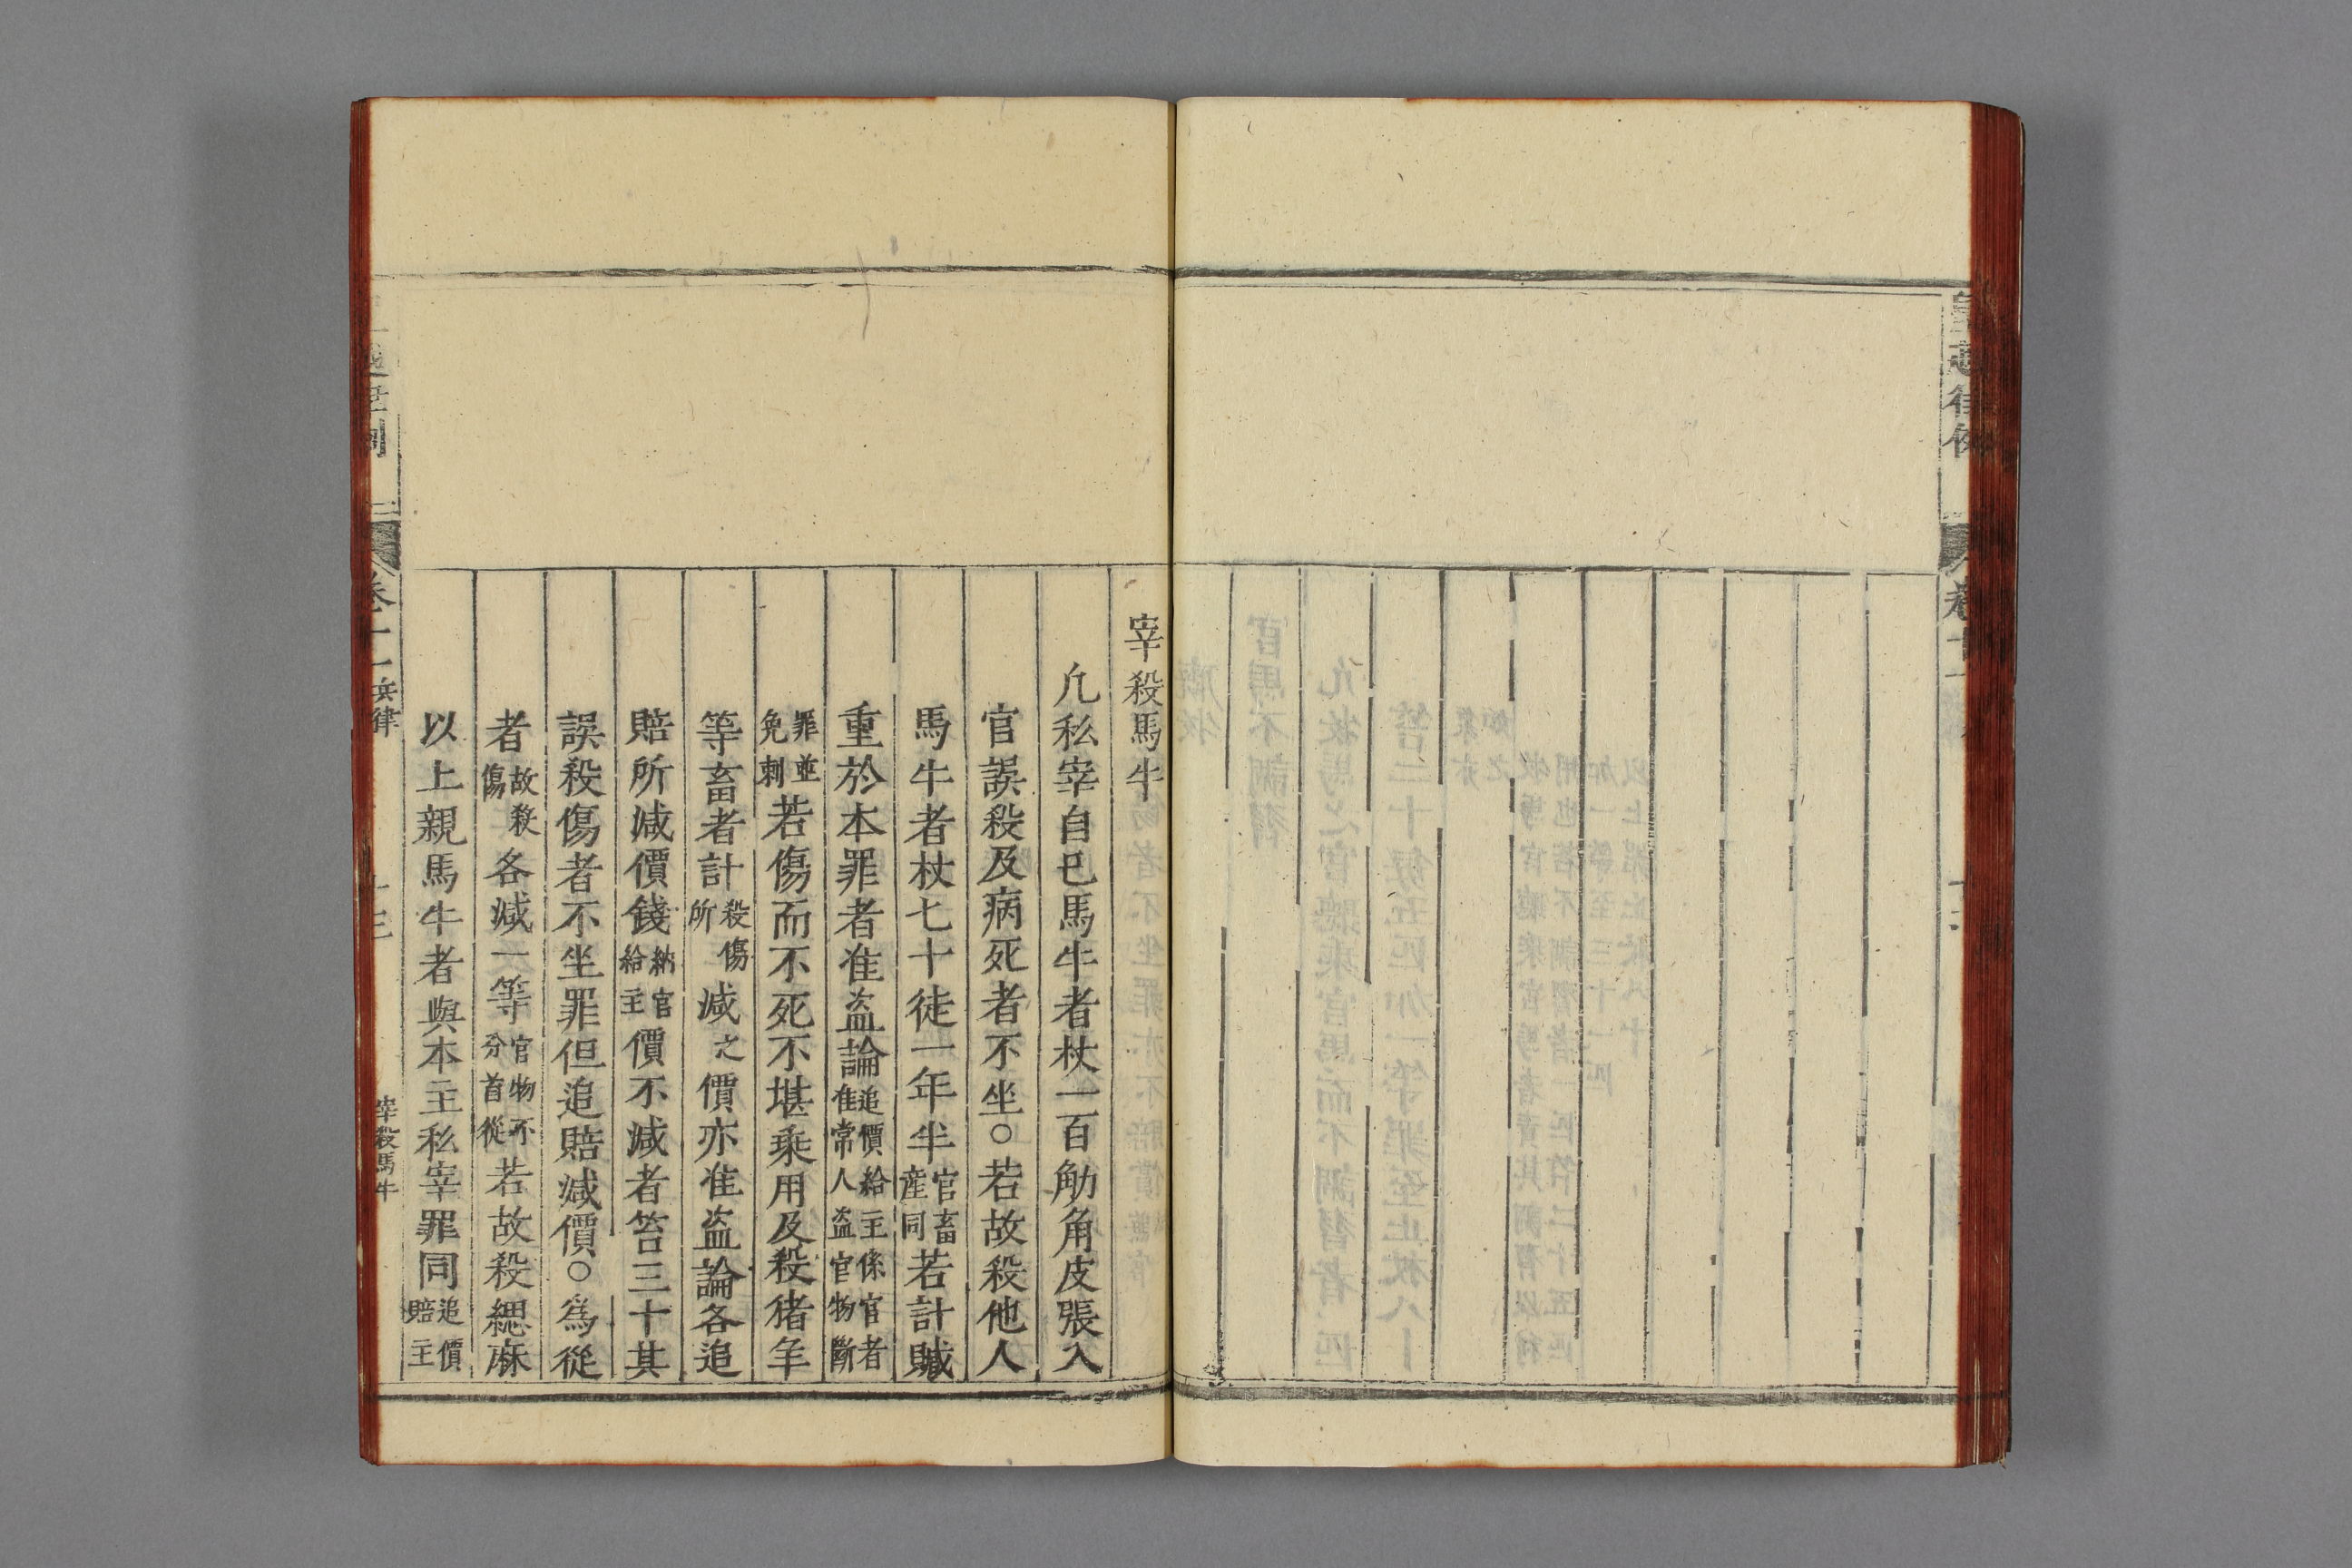 皇越律例
卷十一
宰殺馬牛
凢私宰自已馬牛者杖一百觔角皮張入
官誤殺及病死者不坐○若故殺他人
馬牛者杖七十徒一年半官畜產同若計贓
重於本罪者准盗論追價給主係官者准常人盗官物斷
罪並免刺若傷而不死不堪乘用及殺猪羊
等畜者計殺傷所减之價亦准盗論各追
賠所减價錢納官給主價不减者笞三十其
誤殺傷者不坐罪但追賠减價○為從
者故殺傷各减一等官物不分首從若故殺緦麻
以上親馬牛者與本主私宰罪同追價賠主
兵律
宰殺馬牛